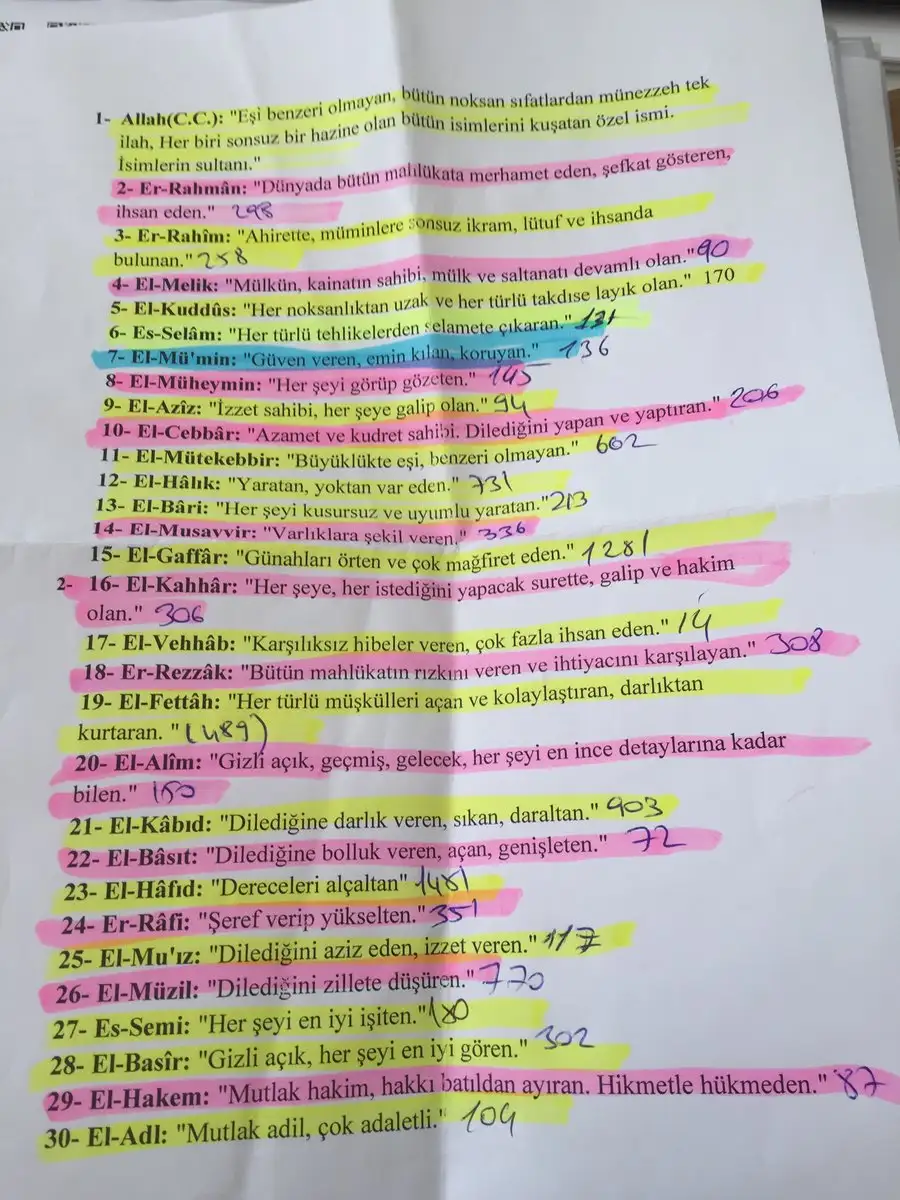 1- Allah(C.C.): "Eşi benzeri olmayan, bütün noksan sıfatlardan münezzeh tek
ilah, Her biri sonsuz bir hazine olan bütün isimlerini kuşatan özel ismi.
İsimlerin sultanı."
2- Er-Rahmân: "Dünyada bütün mahlûkata merhamet eden, şefkat gösteren,
ihsan eden." 298
3- Er-Rahîm: "Ahirette, müminlere sonsuz ikram, lütuf ve ihsanda
bulunan." 258
4- El-Melik: "Mülkün, kainatın sahibi, mülk ve saltanatı devamlı olan." 90
5- El-Kuddûs: "Her noksanlıktan uzak ve her türlü takdise layık olan." 170
6- Es-Selâm: "Her türlü tehlikelerden selamete çıkaran." 131
7- El-Mü'min: "Güven veren, emin kılan, koruyan." 136
8- El-Müheymin: "Her şeyi görüp gözeten." 145
9- El-Azîz: "İzzet sahibi, her şeye galip olan." 94
10- El-Cebbâr: "Azamet ve kudret sahibi. Dilediğini yapan ve yaptıran." 206
11- El-Mütekebbir: "Büyüklükte eşi, benzeri olmayan." 662
12- El-Hâlık: "Yaratan, yoktan var eden." 731
13- El-Bâri: "Her şeyi kusursuz ve uyumlu yaratan." 213
14- El-Musavvir: "Varlıklara şekil veren." 336
15- El-Gaffâr: "Günahları örten ve çok mağfiret eden." 1281
2- 16- El-Kahhâr: "Her şeye, her istediğini yapacak surette, galip ve hakim
olan." 306
17- El-Vehhâb: "Karşılıksız hibeler veren, çok fazla ihsan eden." 14
18- Er-Rezzâk: "Bütün mahlûkatın rızkını veren ve ihtiyacını karşılayan." 308
19- El-Fettâh: "Her türlü müşkülleri açan ve kolaylaştıran, darlıktan
kurtaran. " (489)
20- El-Alîm: "Gizli açık, geçmiş, gelecek, her şeyi en ince detaylarına kadar
bilen." 150
21- El-Kâbıd: "Dilediğine darlık veren, sıkan, daraltan." 903
22- El-Bâsıt: "Dilediğine bolluk veren, açan, genişleten." 72
23- El-Hâfıd: "Dereceleri alçaltan" 1481
24- Er-Râfi: "Şeref verip yükselten." 351
25- El-Mu'ız: "Dilediğini aziz eden, izzet veren." 117
26- El-Müzil: "Dilediğini zillete düşüren." 770
27- Es-Semi: "Her şeyi en iyi işiten." 180
28- El-Basîr: "Gizli açık, her şeyi en iyi gören." 302
29- El-Hakem: "Mutlak hakim, hakkı batıldan ayıran. Hikmetle hükmeden." 87
30- El-Adl: "Mutlak adil, çok adaletli." 104